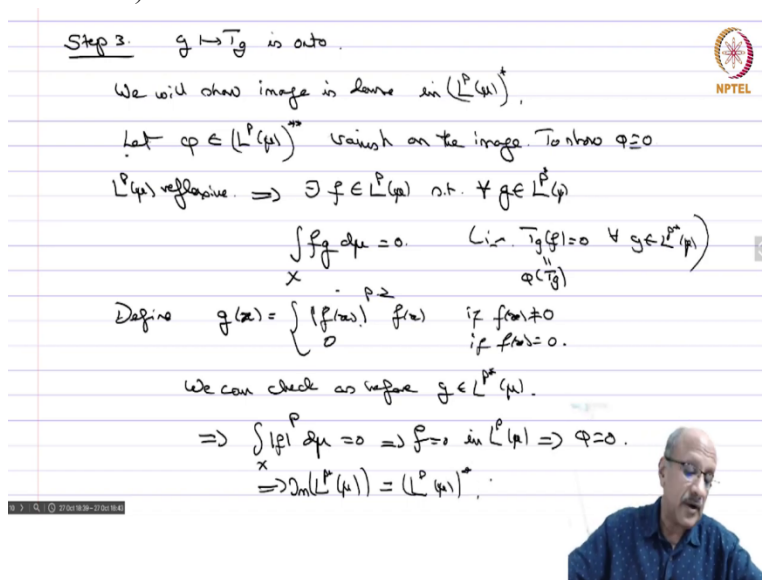 Step 3. g ↦ T_g is onto.
NPTEL
We will show image is dense in (L^p(μ))^*.
Let φ ∈ (L^p(μ))^** vanish on the image. To show φ ≡ 0
L^p(μ) reflexive. ⇒ ∃ f ∈ L^p(μ) s.t. ∀ g ∈ L^p*(μ)
∫_X fg dμ = 0. (i.e. T_g(f) = 0 ∀ g ∈ L^p*(μ))
" φ(T_g)
Define g(x) = { |f(x)|^{p-2} f(x) if f(x) ≠ 0
0 if f(x) = 0.
We can check as before g ∈ L^p*(μ).
⇒ ∫_X |f|^p dμ = 0 ⇒ f = 0 in L^p(μ) ⇒ φ = 0.
⇒ Im(L^p*(μ)) = (L^p(μ))^*.
27 Oct 18:39–27 Oct 18:43